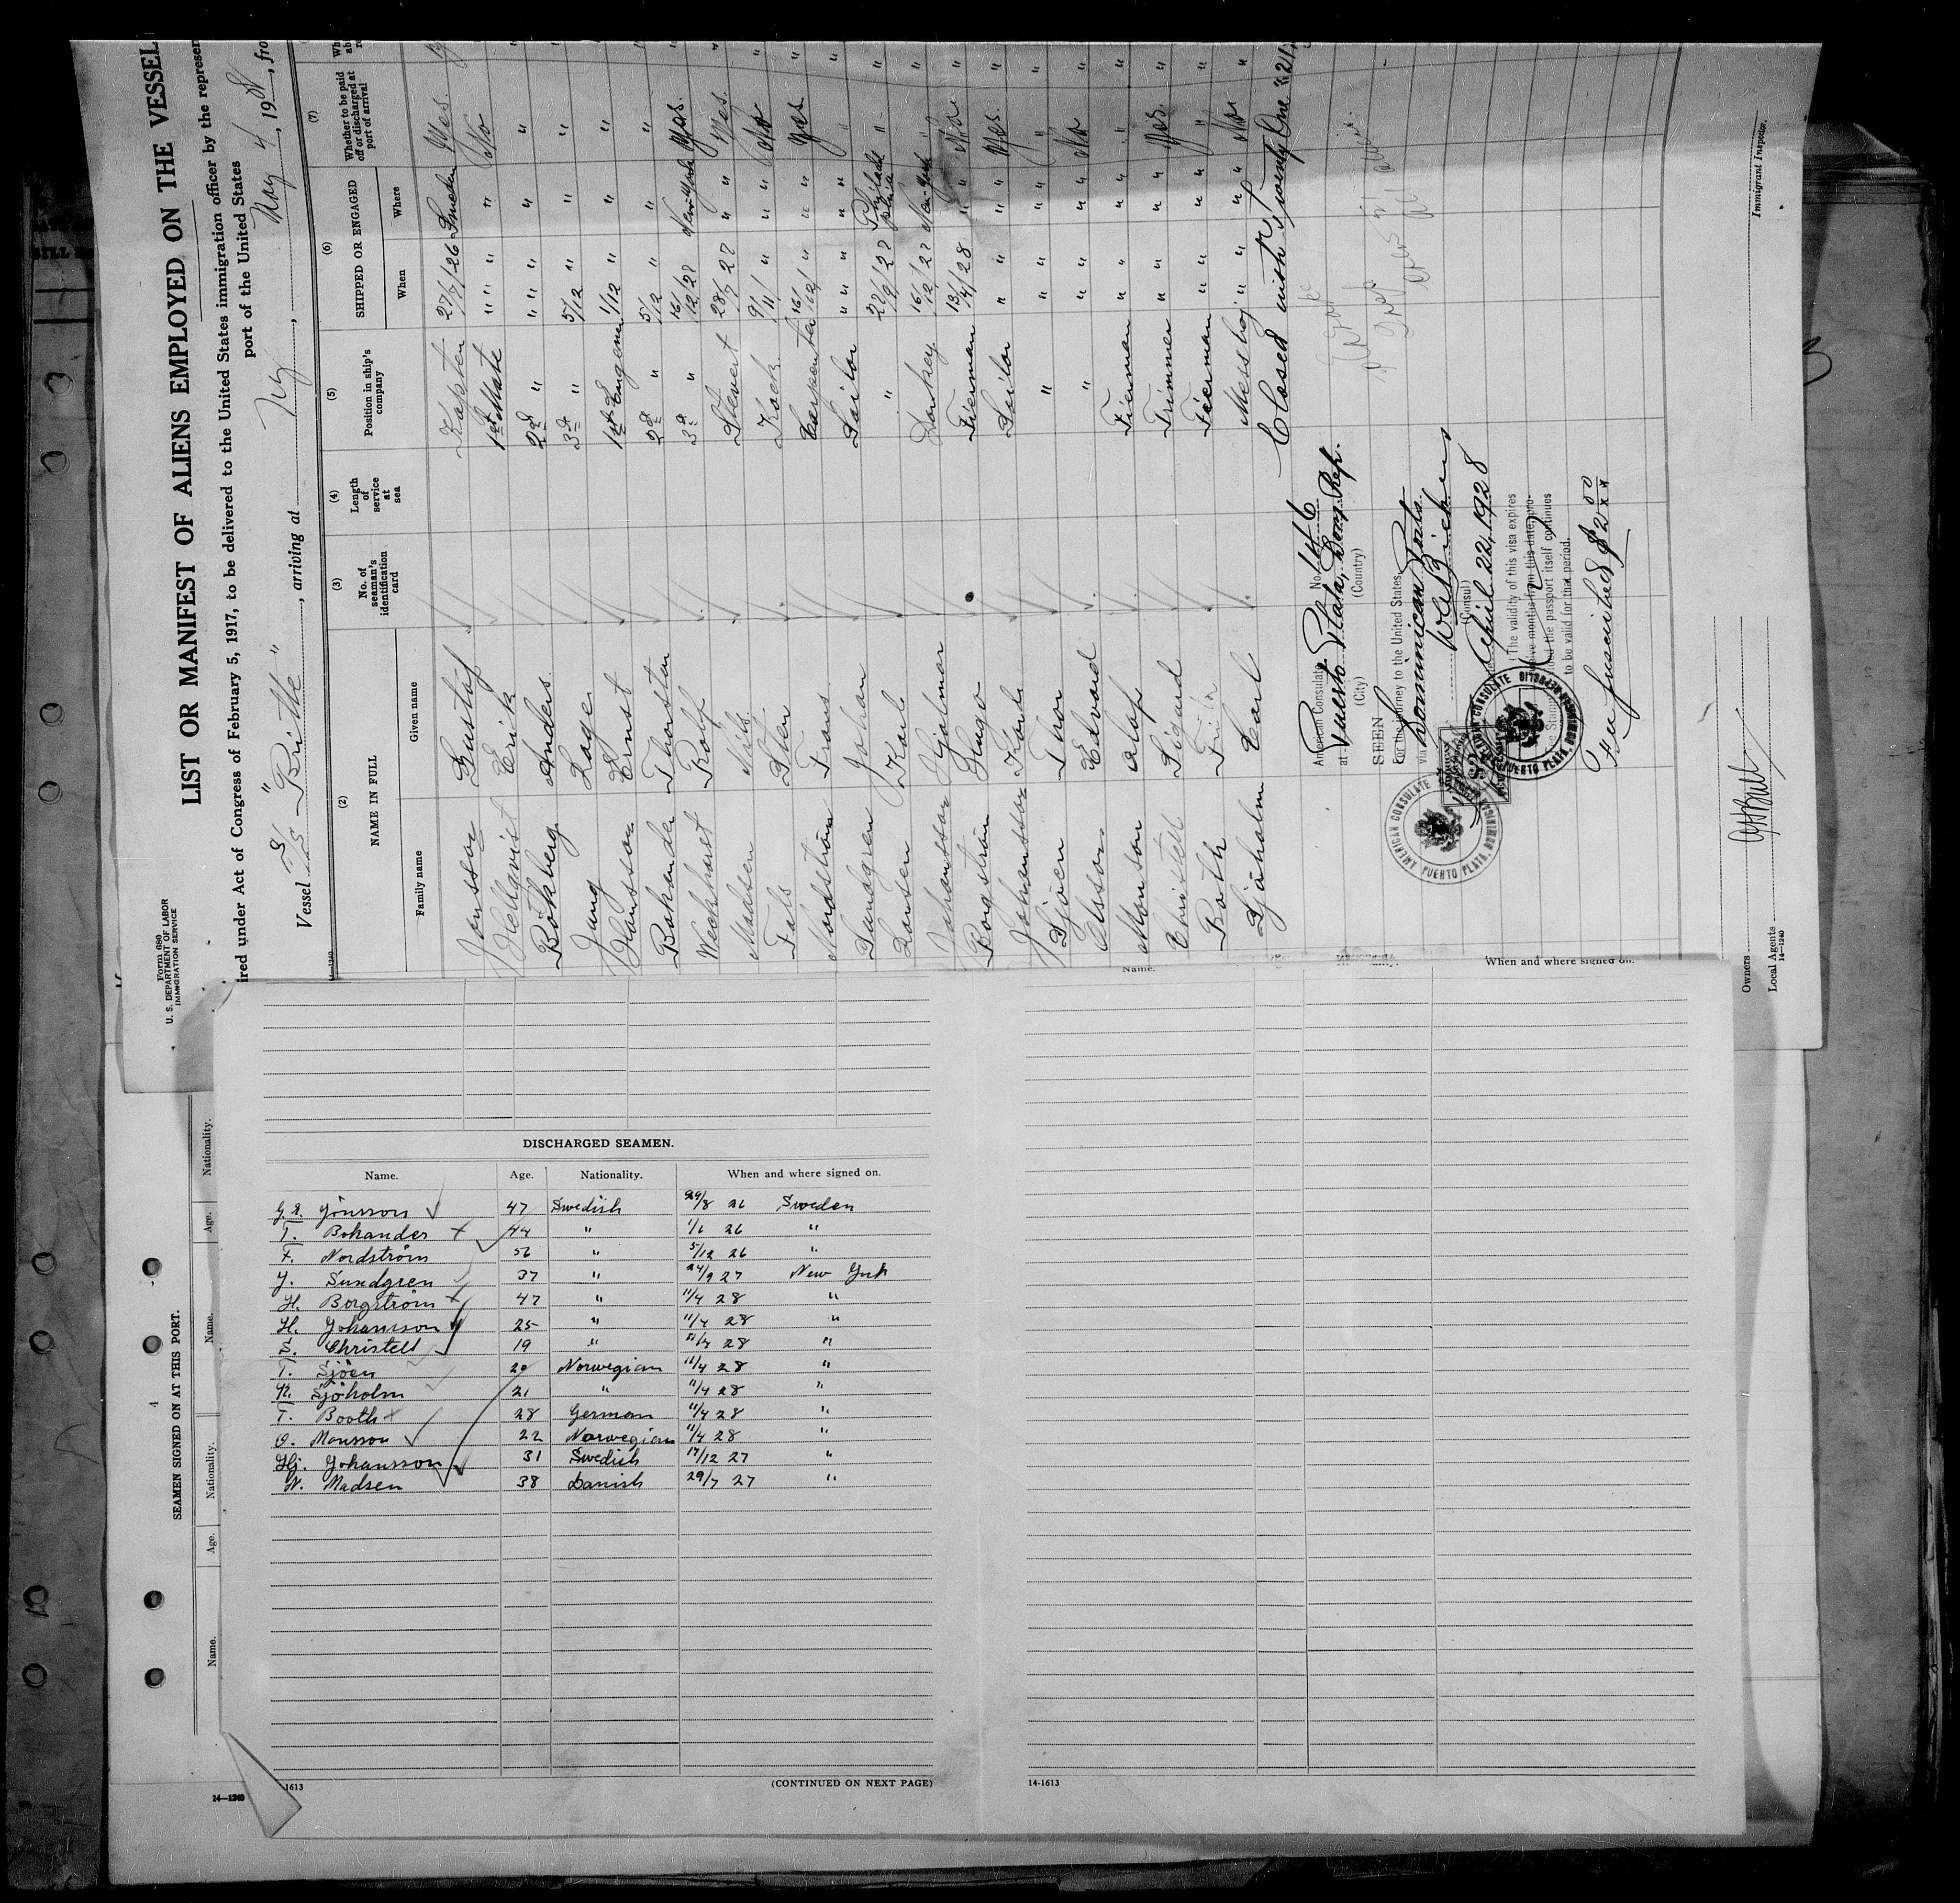 Form 680
U. S. DEPARTMENT OF LABOR
IMMIGRATION SERVICE
LIST OR MANIFEST OF ALIENS EMPLOYED ON THE VESSEL
ired under Act of Congress of February 5, 1917, to be delivered to the United States immigration officer by the represen
port of the United States
Vessel S/S "Britte", arriving at NY, May 4, 1928, fro
14-1240
(2) (3) (4) (5) (6) (7)
NAME IN FULL No. of seaman's identification card Length of service at sea Position in ship's company SHIPPED OR ENGAGED Whether to be paid off or discharged at port of arrival
Family name Given name When Where
Jonsson Gustaf Kapten 27/7/26 Sweden Yes
Hellqvist Erik 1st Mate " " " " No
Bökberg Anders 2d " " " " "
Jung Lage 3d " 5/12 " " "
Hansson Ernst 1st Engener 1/12 " " "
Bohander Thorsten 2d " 5/12 " " "
Weckhorst Rolf 3d " 16/12 27 New-York Yes.
Madsen Nils Stevert 28/7 27 " " Yes.
Fals Sten Kock 9/11 " " " No
Nordström Frans Carpenter 16/12 " " " Yes.
Sundgren Johan Sailor " " " " "
Larsen Karl " 22/9 27 Philadelphia "
Johansson Hjalmar Donkey 16/12 27 New-York "
Borgström Hugo Fierman 13/4 28 " " No
Johansson Karl Sailor " " " " Yes.
Sjöen Thor " " " " " "
Olsson Edvard " " " " " No
Monson Olaf Fierman " " " " "
Christell Sigurd Trimmer " " " " Yes.
Both Fritz Fierman " " " " "
Sjöholm Carl Messboj " " " " No
Closed with Twenty One "21"
American Consulate No. 146
at Puerto Plata, Dom. Rep.
(City) (Country)
SEEN
For the journey to the United States
via Dominican Ports
W. A. Bickers
(Consul)
April 22, 1928
(The validity of this visa expires
twelve months from this date, pro-
vided the passport itself continues
to be valid for that period.
Fee
$2.00
AMERICAN CONSULATE
PUERTO PLATA, DOMINICAN REPUBLIC
AMERICAN CONSULATE
PUERTO PLATA, DOMINIC
Owners
Local Agents
14-1240
Immigrant Inspector.
SEAMEN SIGNED ON AT THIS PORT.
Name. Age. Nationality. Name. Age. Nationality.
4
14-1240
Name. When and where signed on.
DISCHARGED SEAMEN.
Name. Age. Nationality. When and where signed on.
G. A. Jönsson 47 Swedish 29/8 26 Sweden
T. Bohander 44 " 1/6 26 "
F. Nordström 56 " 5/12 26 "
J. Sundgren 37 " 24/9 27 New York
H. Borgström 47 " 11/4 28 "
H. Johansson 25 " 11/4 28 "
S. Christell 19 " 11/4 28 "
T. Sjöen 20 Norwegian 11/4 28 "
K. Sjöholm 21 " 11/4 28 "
F. Booth 28 German 11/4 28 "
O. Monsson 22 Norwegian 11/4 28 "
Hj. Johansson 31 Swedish 17/12 27 "
N. Madsen 38 Danish 29/7 27 "
1613
(CONTINUED ON NEXT PAGE)
14-1613